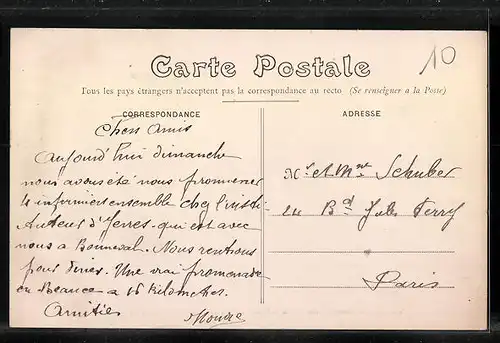 10
Carte Postale
Tous les pays étrangers n'acceptent pas la correspondance au recto (Se renseigner a la Poste)
CORRESPONDANCE
Chers Amis
Aujourd'hui dimanche
nous avons été nous promener
infirmiers ensemble chez
Auteur d'Yerres qui est avec
nous a Bonneval. Nous rentrons
pour diner. Une vrai promenade
en Beauce a 16 kilometres.
Amitiés
ADRESSE
Mr et Mme Schuber
Bd Jules Ferry
Paris